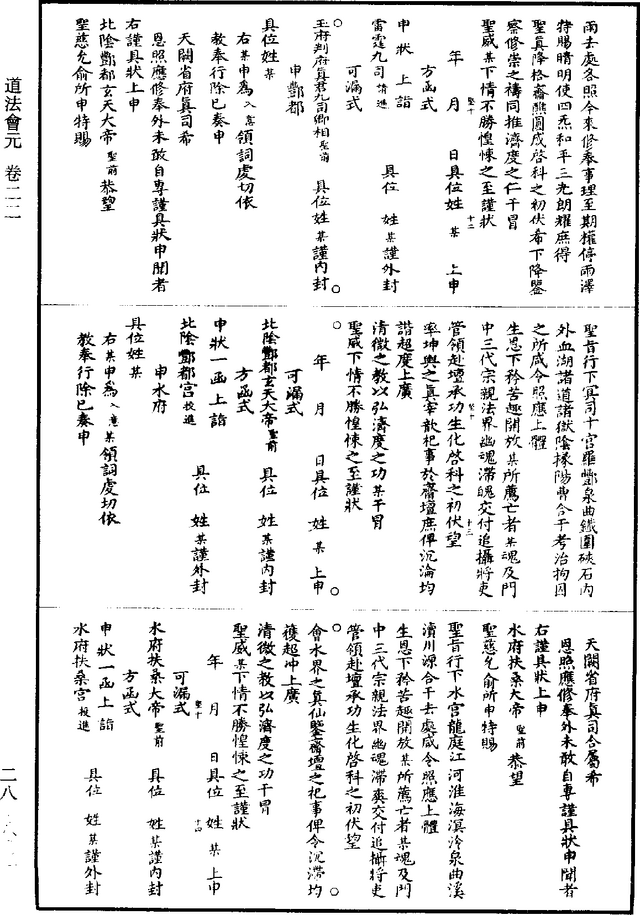 雨去處各照今來修奉事理至期權停雨澤
特賜晴明使四炁和平三光朗耀庶得
聖真降格齋醮圓成啓科之初伏希下降鑒
察修崇之禱同推濟度之仁干冒
聖威某下情不勝惶悚之至謹狀
年　月　日具位姓　某　上申
方函式
申狀上詣
雷霆九司 請進　具位　姓 某謹外封
可漏式
玉府判府真君九司卿相 聖前　具位姓 某謹內封
申酆都
具位姓 某
右某申為 入意 領詞處切依
教奉行除已奏申
天闕省府真司希
恩照應修奉外未敢自專謹具狀申聞者
右謹具狀上申
北陰酆都玄天大帝 聖前 恭望
聖慈允俞所申特賜
聖旨行下冥司十宮羅酆泉曲鐵圍硤石內
外血湖諸道諸獄陰掾陽曹合干考治拘囚
之所咸令照應上體
生恩下矜苦趣開放某所薦亡者某魂及門
中三代宗親法界幽魂滯魄交付追攝將吏
管領赴壇承功生化啓科之初伏望
率坤輿之真宰歆祀事於齋壇庶俾沉淪均
諧超度上廣
清微之教以弘濟度之功某干冒
聖威下情不勝惶悚之至謹狀
年　月　日具位　姓　某　上申
可漏式
北陰酆都玄天大帝 聖前　具位　姓 某謹內封
方函式
申狀一函上詣
北陰酆都宮 投進　具位　姓 某謹外封
申水府
具位姓 某
右某申為 入意 某領詞處切依
教奉行除已奏申
天闕省府真司合屬希
恩照應修奉外未敢自專謹具狀申聞者
右謹具狀上申
水府扶桑大帝 聖前 恭望
聖慈允俞所申特賜
聖旨行下水宮龍庭江河淮海溟泠泉曲溪
瀆川源合干去處咸令照應上體
生恩下矜苦趣開放某所薦亡者某魂及門
中三代宗親法界幽魂滯爽交付追攝將吏
管領赴壇承功生化啓科之初伏望
會水界之真仙鑒齋壇之祀事俾令沉滯均
獲超沖上廣
清微之教以弘濟度之功干冒
聖威某下情不勝惶悚之至謹狀
年　月　日具位　姓　某　上申
可漏式
水府扶桑大帝 聖前　具位　姓 某謹內封
方函式
申狀一函上詣
水府扶桑宮 投進　具位　姓 某謹外封
道法會元　卷二二
二八